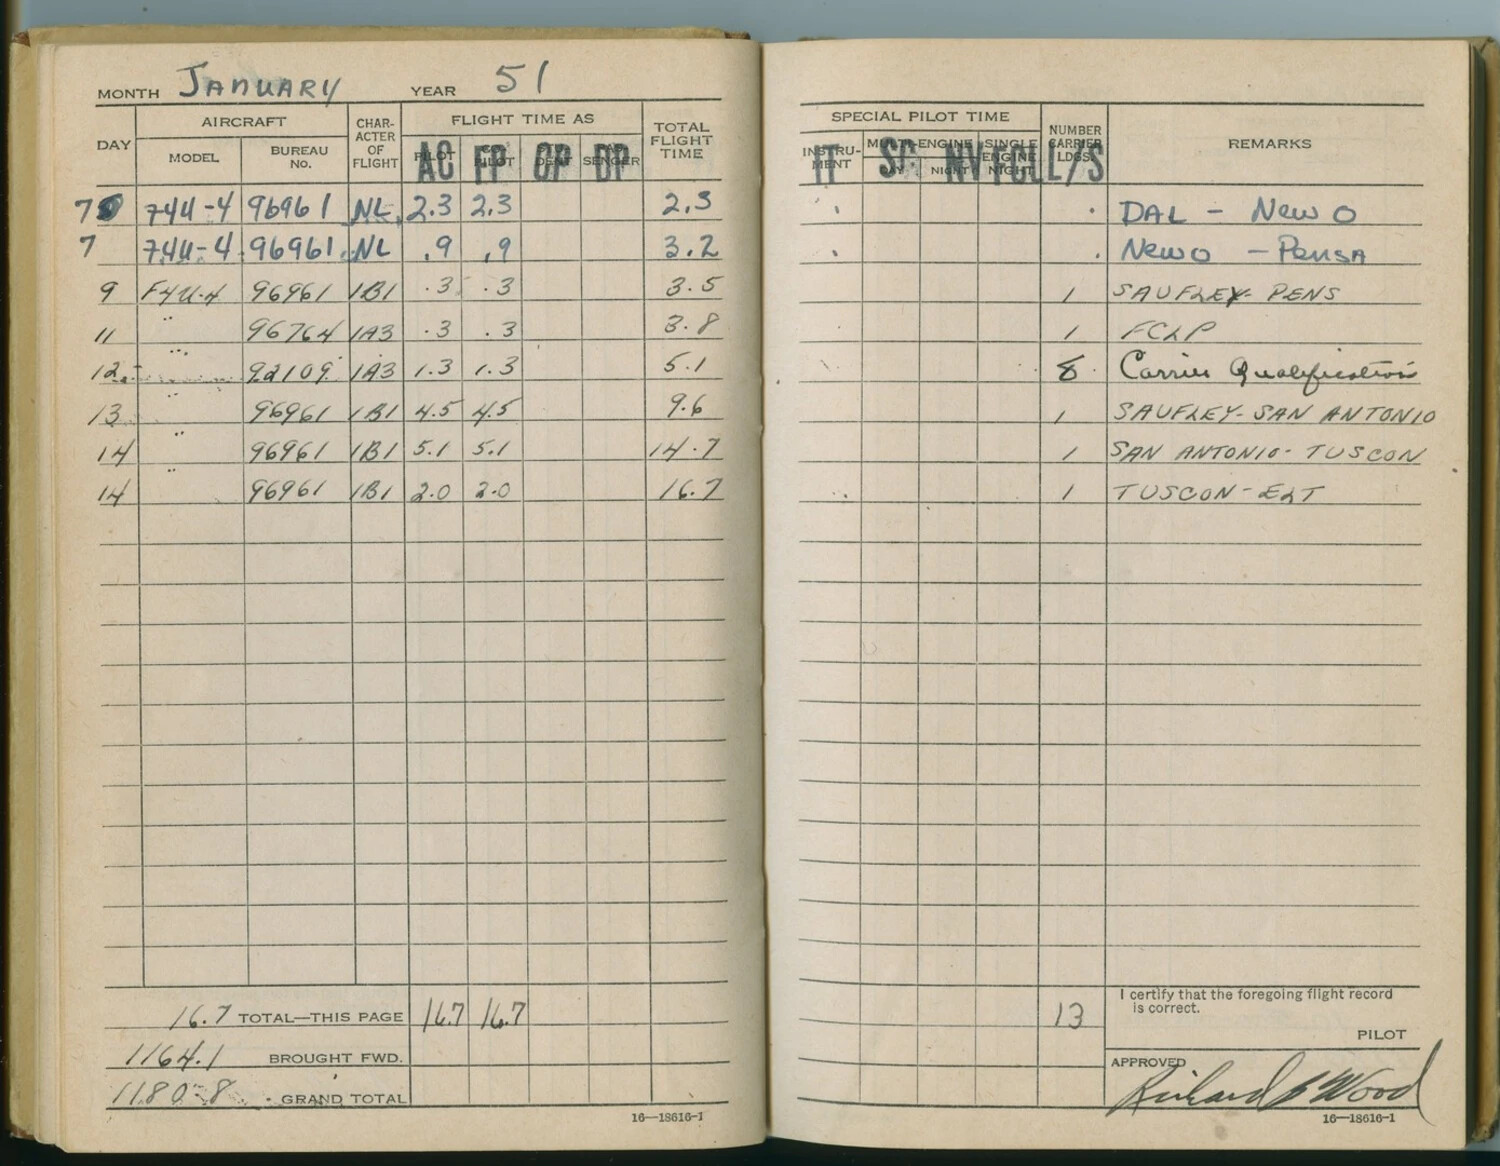 MONTH JANUARY YEAR 51
DAY AIRCRAFT CHARACTER OF FLIGHT FLIGHT TIME AS TOTAL FLIGHT TIME
MODEL BUREAU No. PILOT AC FP OP SENGER DP
7 74U-4 96961 NL 2.3 2.3 2.3
7 74U-4 96961 NL .9 .9 3.2
9 F4U-4 96961 1B1 .3 .3 3.5
11 " 96764 1A3 .3 .3 3.8
12 " 92109 1A3 1.3 1.3 5.1
13 " 96961 1B1 4.5 4.5 9.6
14 " 96961 1B1 5.1 5.1 14.7
14 " 96961 1B1 2.0 2.0 16.7
16.7 TOTAL—THIS PAGE 16.7 16.7
1164.1 BROUGHT FWD.
1180.8 GRAND TOTAL
16—18616-1
SPECIAL PILOT TIME NUMBER CARRIER LDGS. REMARKS
INSTRUMENT IT MULTI-ENGINE NIGHT SINGLE ENGINE NIGHT NV FCL L/S
DAL - NEW O
NEW O - PENSA
1 SAUFLEY- PENS
1 FCLP
8 Carrier Qualification
1 SAUFLEY- SAN ANTONIO
1 SAN ANTONIO- TUSCON
1 TUSCON- ELT
13
I certify that the foregoing flight record is correct.
PILOT
APPROVED
Richard B Wood
16—18616-1